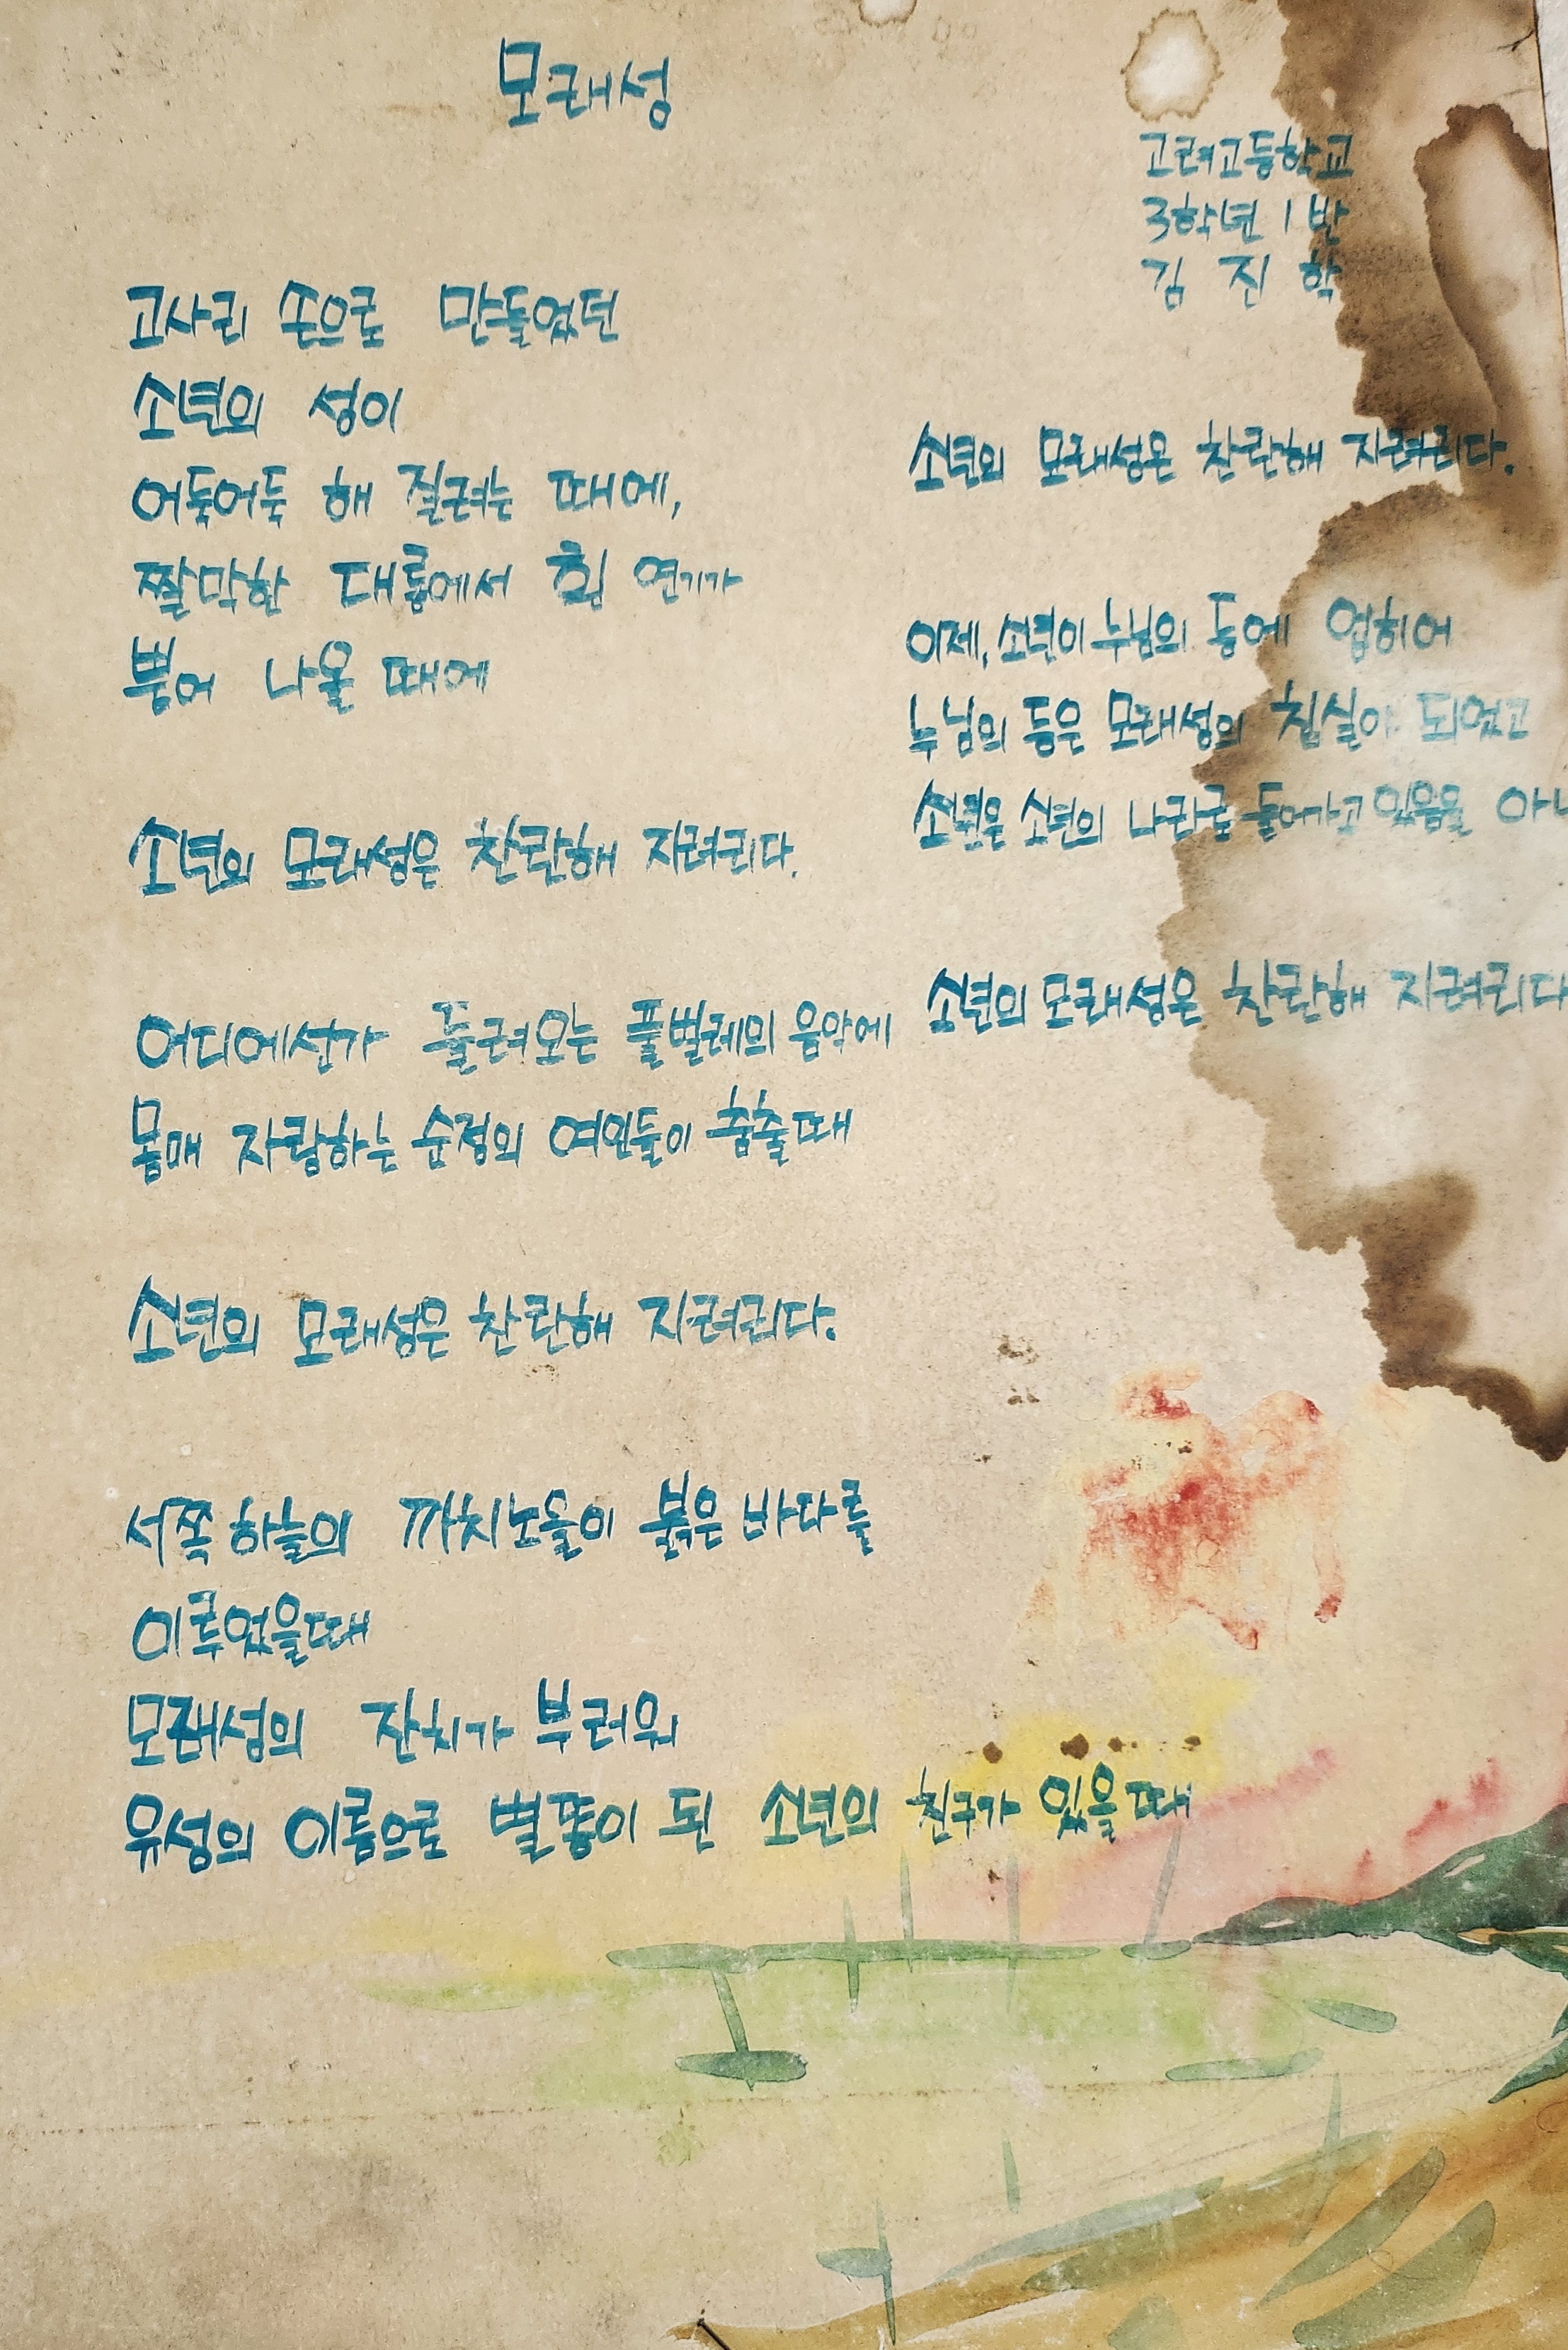 모래성
고려고등학교
3학년 1반
김 진 학
고사리 손으로 만들었던
소년의 성이
어둑어둑 해 질려는 때에,
짤막한 대롱에서 흰 연기가
뿜어 나올 때에
소년의 모래성은 찬란해 지려리다.
어디에선가 들려오는 풀벌레의 음악에
몸매 자랑하는 순정의 여인들이 춤출때
소년의 모래성은 찬란해 지려리다.
서쪽 하늘의 까치노을이 붉은 바다를
이루었을때
모래성의 잔치가 부러워
유성의 이름으로 별똥이 된 소년의 친구가 있을때
소년의 모래성은 찬란해 지려리다.
이제, 소년이 누님의 등에 업히어
누님의 등은 모래성의 침실이 되었고
소년은 소년의 나라로 들어가고 있음을
소년의 모래성은 찬란해 지려리다